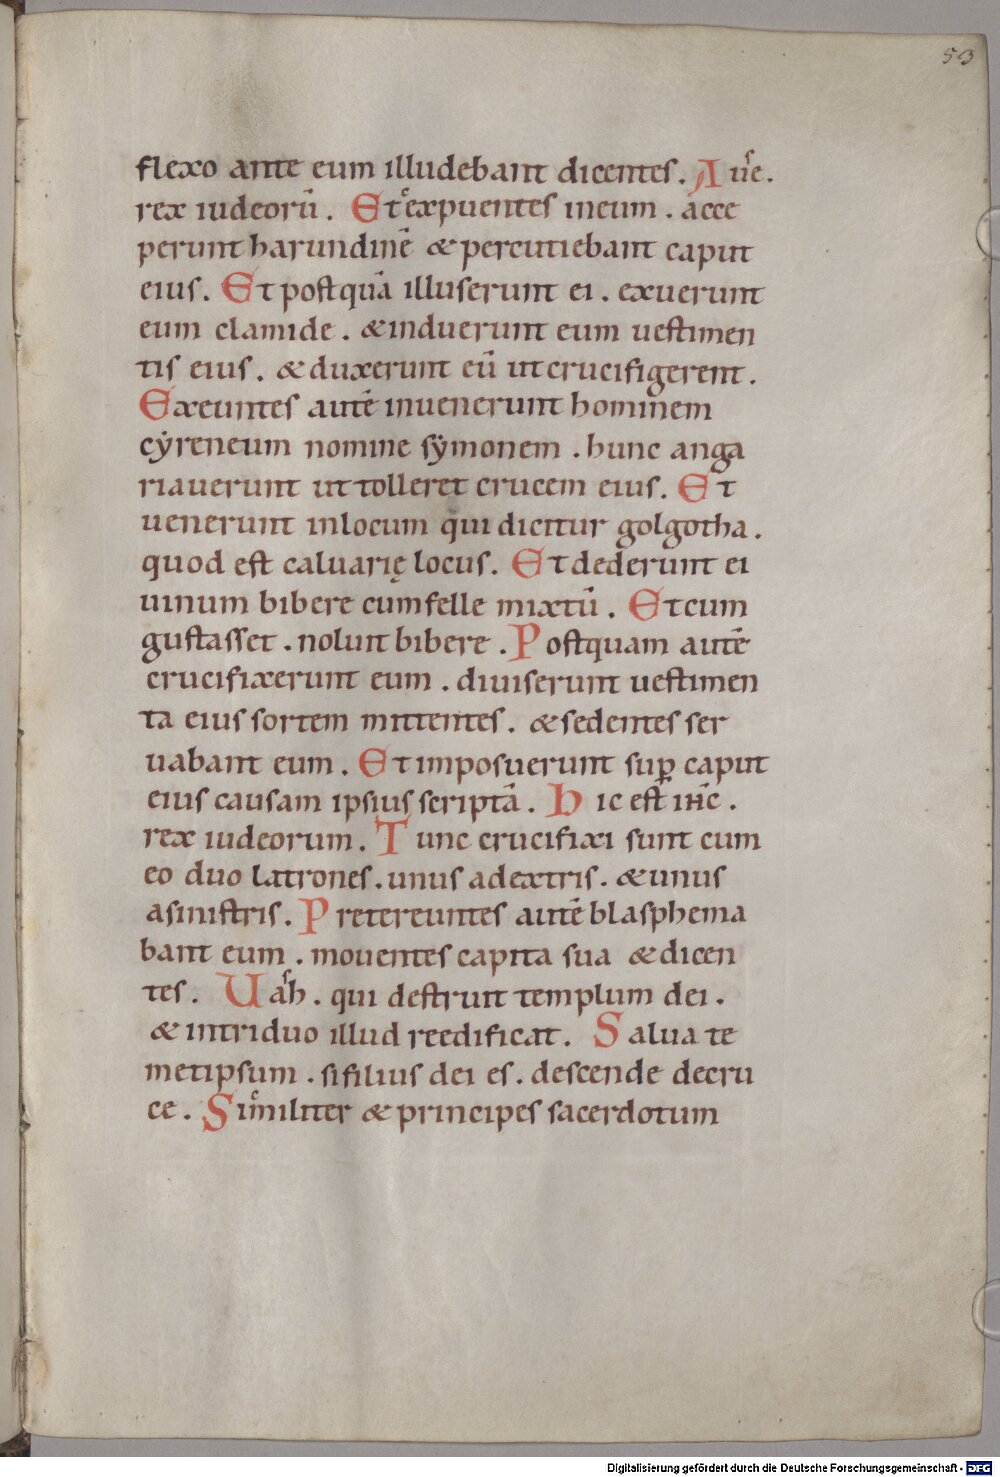 53
flexo ante eum illudebant dicentes. Aue.
rex iudeorū. Et expuentes ineum. acce
perunt harundinē & percutiebant caput
eius. Et postquā illuserunt ei. exuerunt
eum clamide. & induerunt eum uestimen
tis eius. & duxerunt eū ut crucifigerent.
Exeuntes autē inuenerunt hominem
cyreneum nomine symonem. hunc anga
riauerunt ut tolleret crucem eius. Et
uenerunt inlocum qui dicitur golgotha.
quod est caluarię locus. Et dederunt ei
uinum bibere cumfelle mixtū. Et cum
gustasset. noluit bibere. Postquam autē
crucifixerunt eum. diuiserunt uestimen
ta eius sortem mittentes. & sedentes ser
uabant eum. Et imposuerunt suꝑ caput
eius causam ipsius scriptā. Hic est ihc̄.
rex iudeorum. Tunc crucifixi sunt cum
eo duo latrones. unus adextris. & unus
asinistris. Pretereuntes autē blasphema
bant eum. mouentes capita sua & dicen
tes. Uah. qui destruit templum dei.
& intriduo illud reedificat. Salua te
metipsum. sifilius dei es. descende decru
ce. Similiter & principes sacerdotum
Digitalisierung gefördert durch die Deutsche Forschungsgemeinschaft - DFG